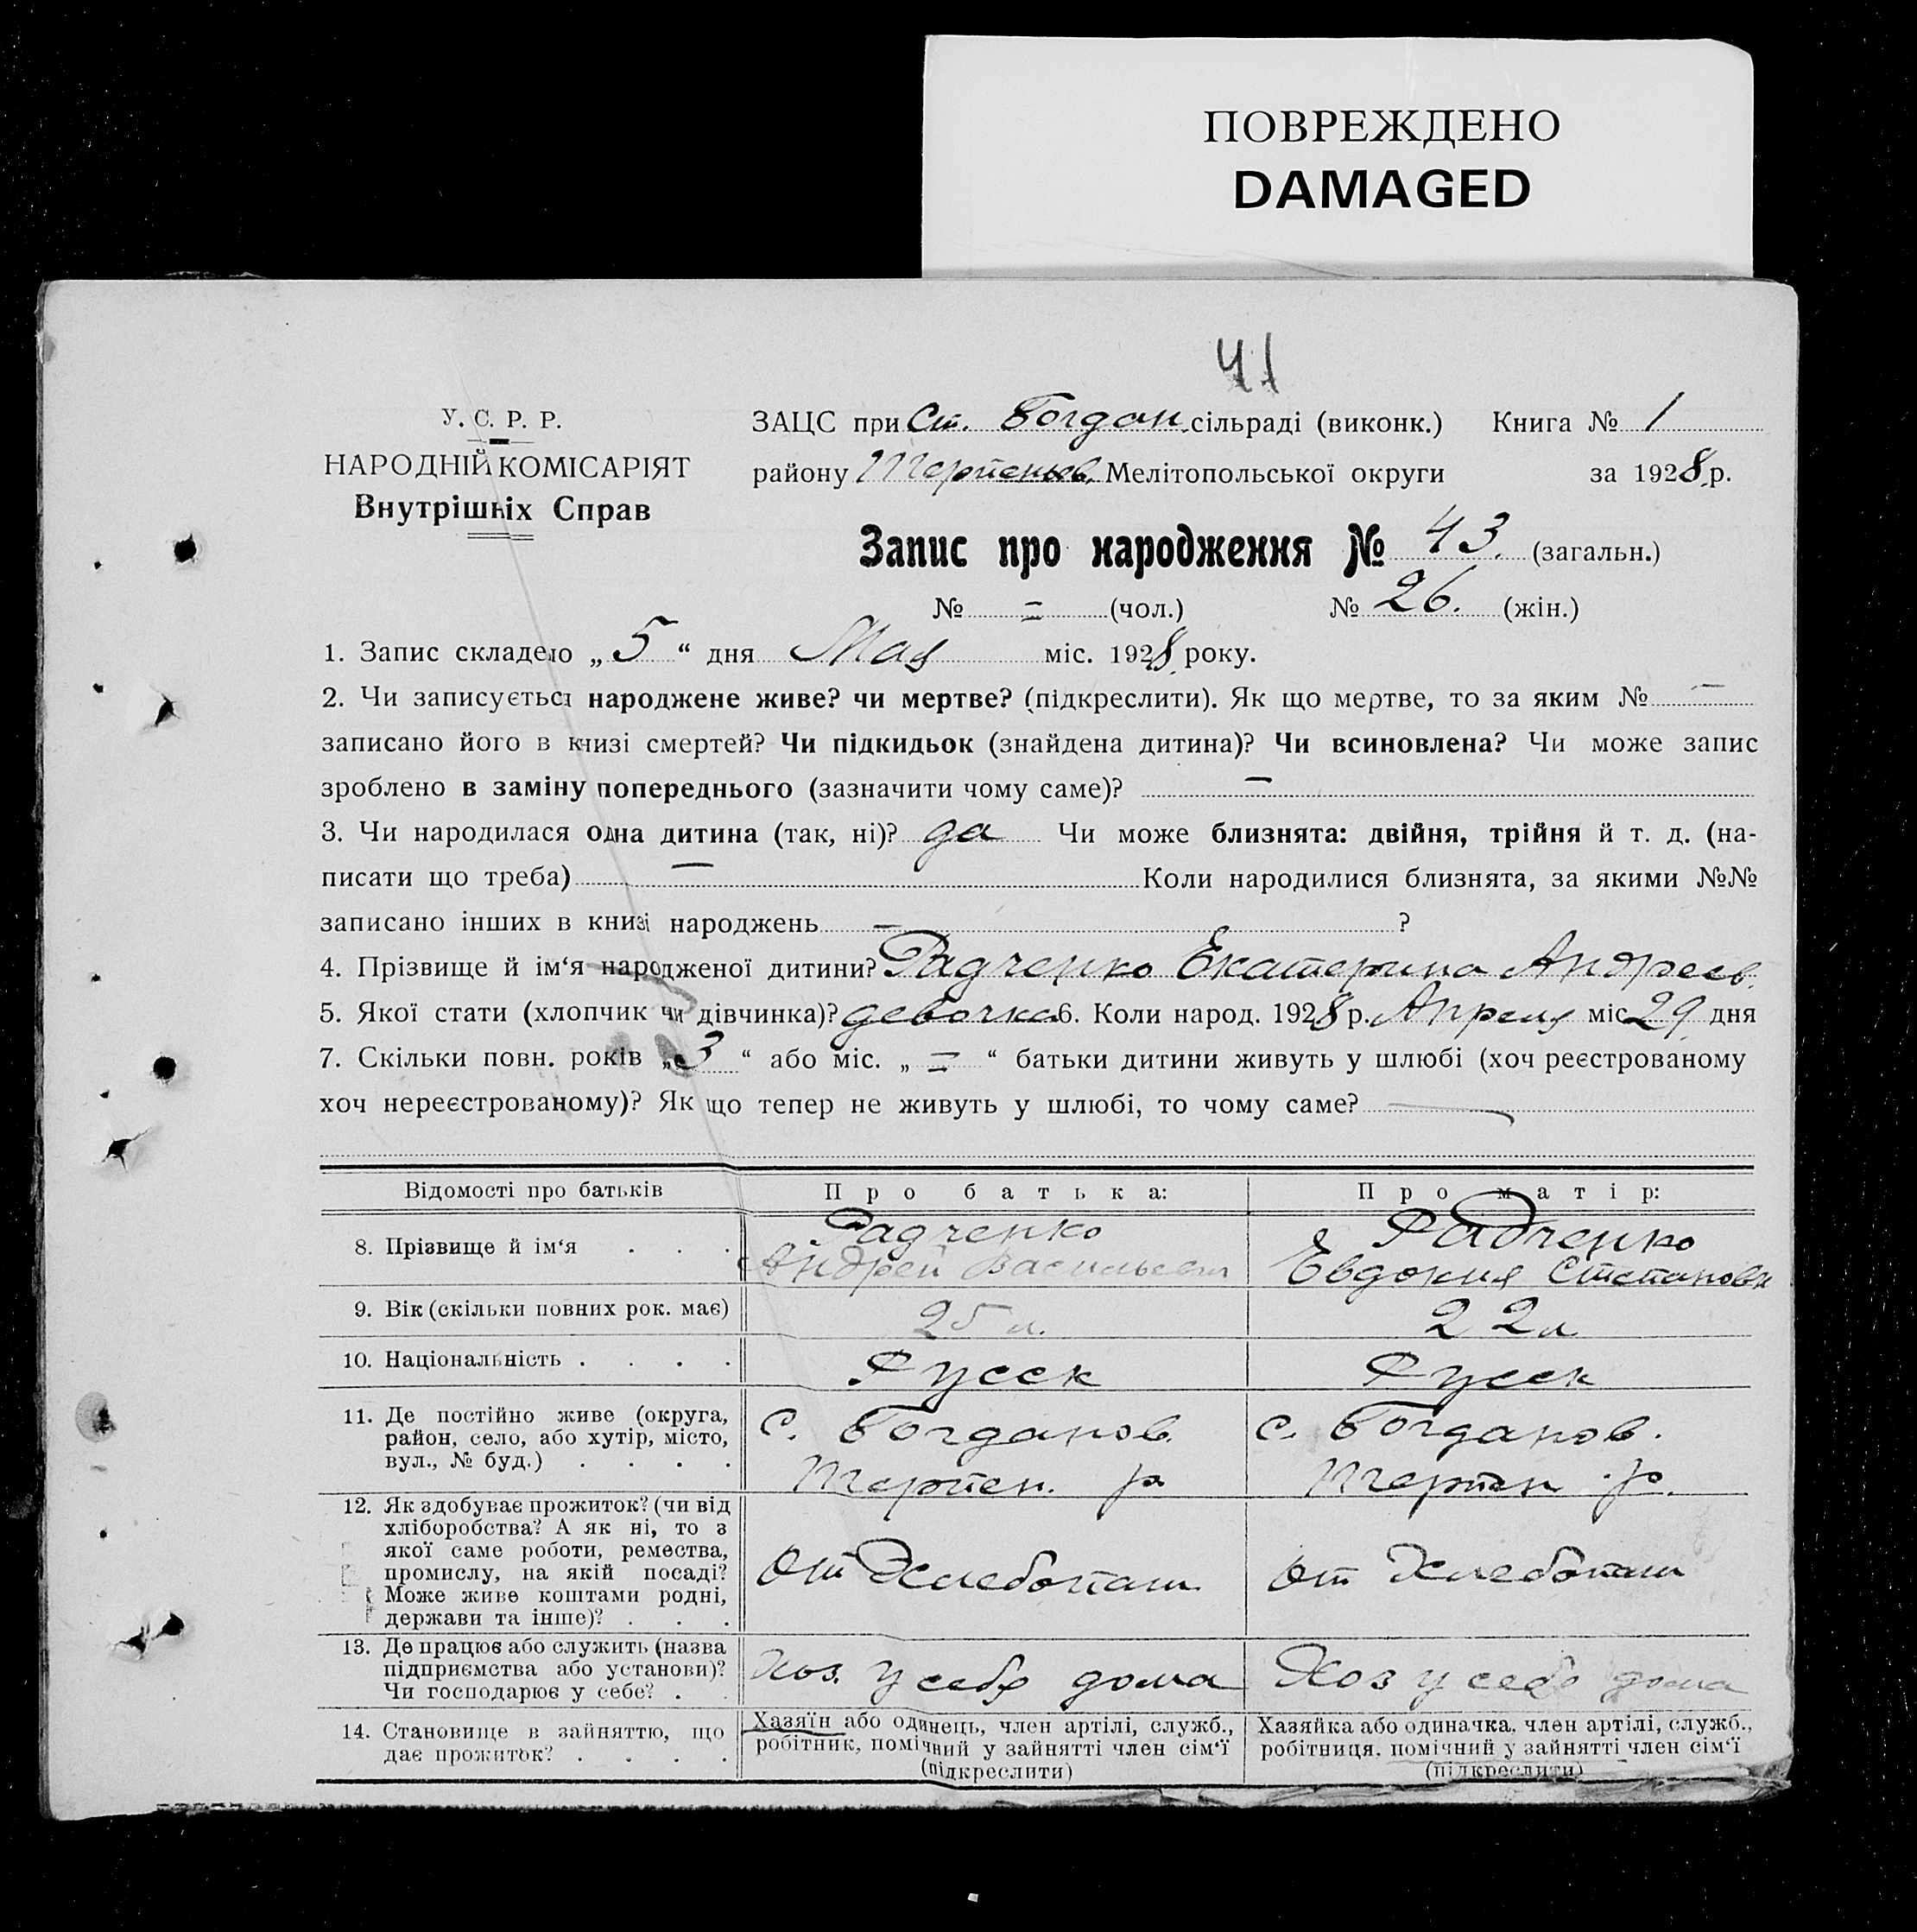 ПОВРЕЖДЕНО
DAMAGED
41
У. С. Р. Р.
НАРОДНІЙ КОМІСАРІЯТ
Внутрішніх Справ
ЗАЦС при Ст. Богдан. сільраді (виконк.) Книга № 1
району Терпеньев. Мелітопольської округи за 1928 р.
Запис про народження № 43. (загальн.)
№ = (чол.) № 26. (жін.)
1. Запис складено „ 5 “ дня Мая міс. 1928 року.
2. Чи записується народжене живе? чи мертве? (підкреслити). Як що мертве, то за яким № —
записано його в книзі смертей? Чи підкидьок (знайдена дитина)? Чи всиновлена? Чи може запис
зроблено в заміну попереднього (зазначити чому саме)? —
3. Чи народилася одна дитина (так, ні)? да Чи може близнята: двійня, трійня й т. д. (на-
писати що треба) — Коли народилися близнята, за якими №№
записано інших в книзі народжень — ?
4. Прізвище й ім‘я народженої дитини? Радченко Екатерина Андреев.
5. Якої стати (хлопчик чи дівчинка)? девочка 6. Коли народ. 1928 р. Апреля міс 29 дня
7. Скільки повн. років „ 3 “ або міс. „ = “ батьки дитини живуть у шлюбі (хоч реєстрованому
хоч нереєстрованому)? Як що тепер не живуть у шлюбі, то чому саме? —
Відомості про батьків Про батька: Про матір:
8. Прізвище й ім‘я . . . Радченко Радченко
Андрей Васильевич Евдокия Степановн
9. Вік (скільки повних рок. має) 25 л. 22 л
10. Національність . . . . Русск Русск
11. Де постійно живе (округа, район, село, або хутір, місто, вул., № буд.) . . . . с. Богданов. с. Богданов.
Терпен. р Терпен р.
12. Як здобуває прожиток? (чи від хліборобства? А як ні, то з якої саме роботи, ремества, промислу, на якій посаді? Може живе коштами родні, держави та інше)? . . . От Хлебопаш. От Хлебопаш
13. Де працює або служить (назва підприємства або установи)? Чи господарює у себе? . . Хоз. у себя дома Хоз у себя дома
14. Становище в зайняттю, що дає прожиток? . . . . Хазяїн або одинець, член артілі, служб., робітник, помічний у зайнятті член сім‘ї (підкреслити) Хазяйка або одиначка, член артілі, служб., робітниця, помічний у зайнятті член сім‘ї (підкреслити)